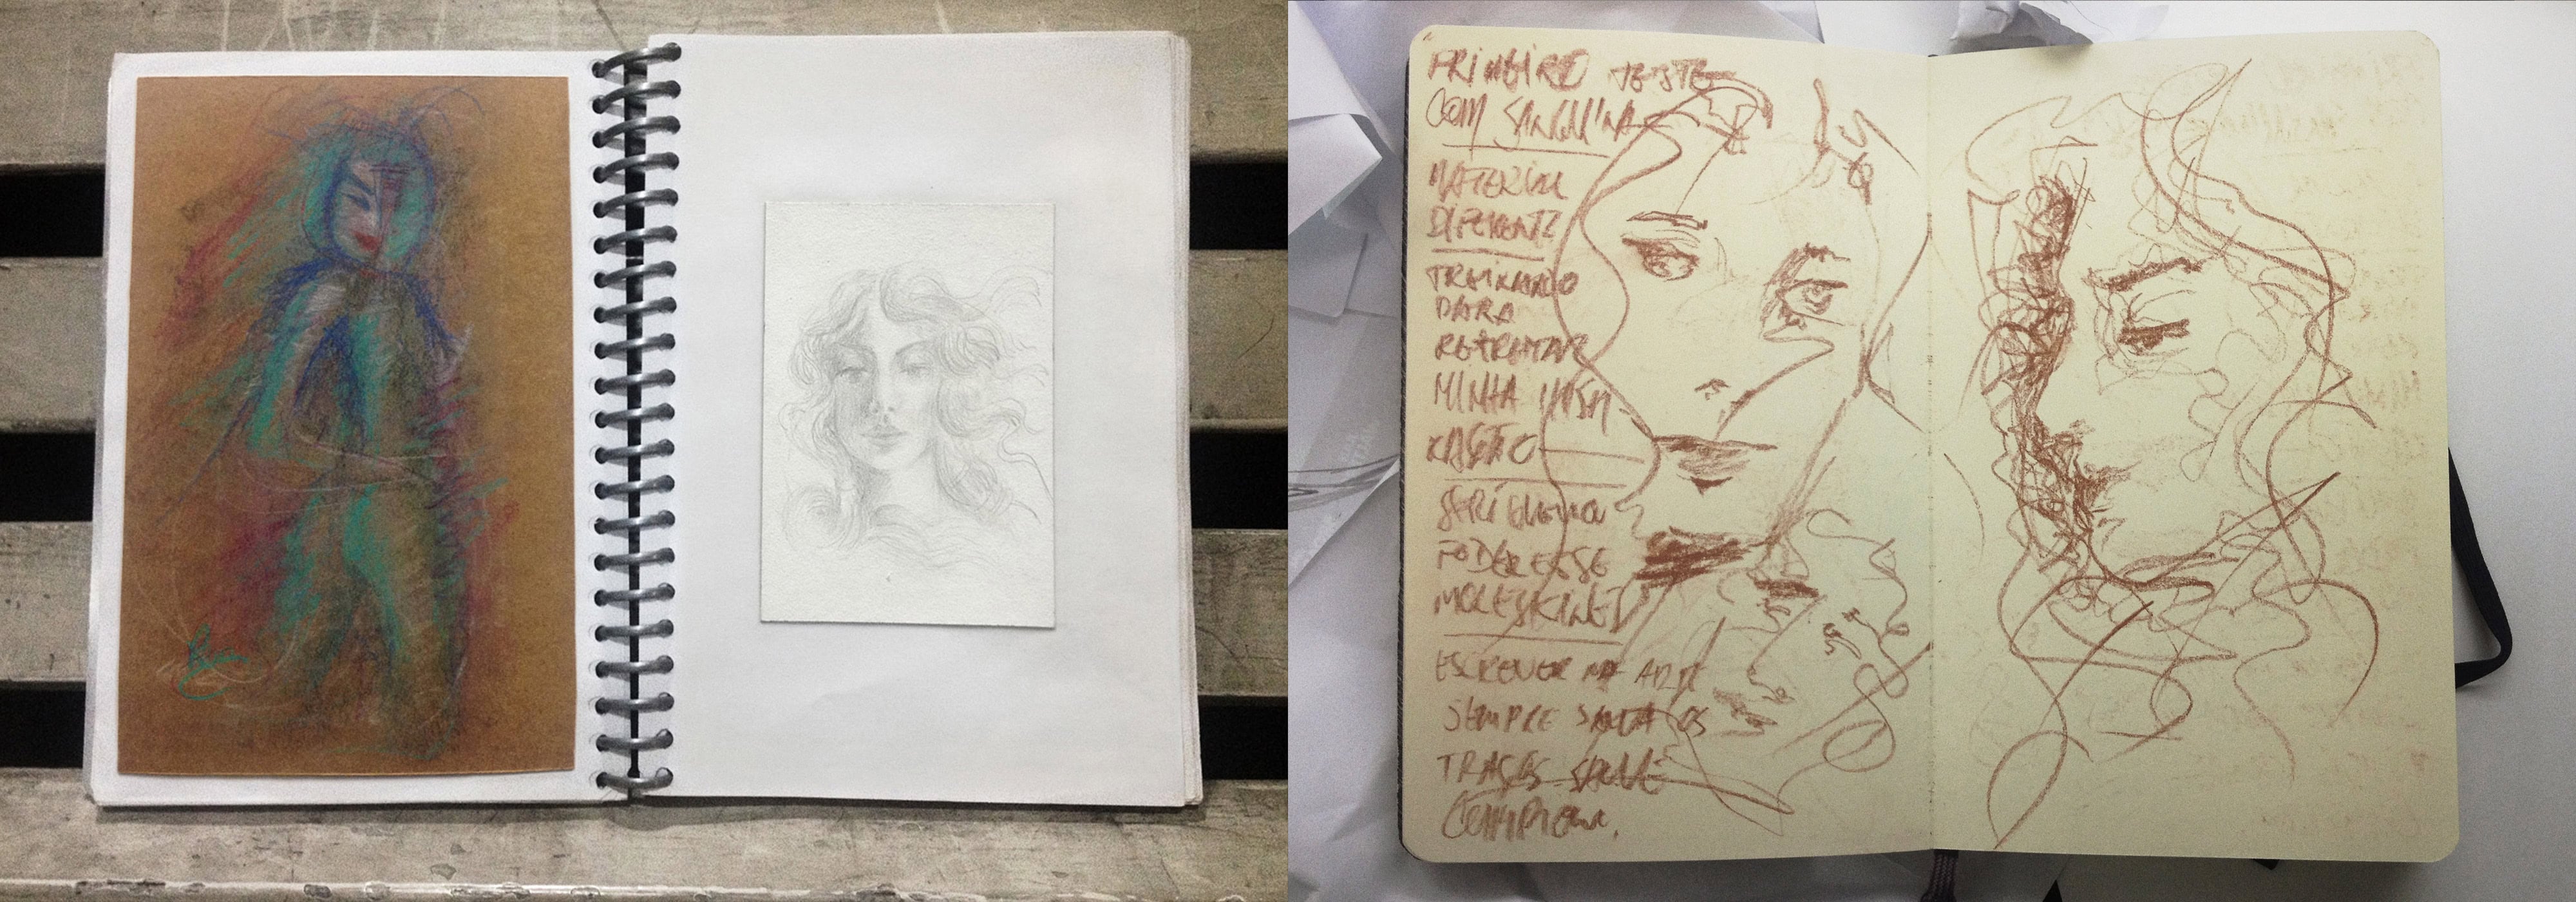 PRIMEIRO TESTE
COM SANGUÍNA
MATERIAL
DIFERENTE
TREINANDO
PARA
RETRATAR
MINHA MUSA
SERÍ QUE VOU
FODER ESSE
MOLESKINE?
ESCREVER NA ARTE
SEMPRE SALTA OS
TRAÇOS